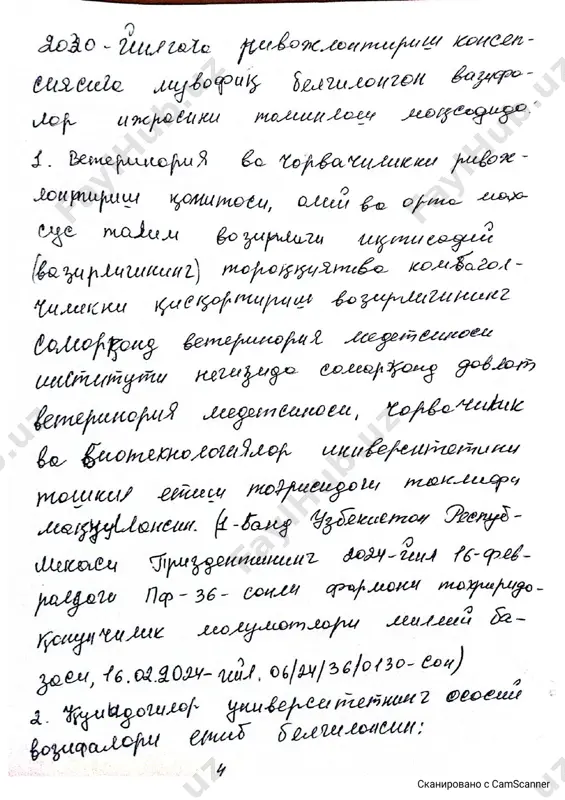 2030-йилгача ривожлантириш консеп-
сиясига мувофиқ белгиланган вазифа-
лар ижросини таминлаш мақсадида.
1. Ветеринария ва чорвачиликни ривож-
лантириш қомитаси, олий ва орта мах
сус талим вазирлиги иқтисадий
(вазирлигининг) тараққиятва камбағал-
чиликни қисқартириш вазирлигининг
Самарқанд ветеринария медетсинаси
институти негизида самарқанд давлат
ветеринария медетсинаси, чорвачилик
ва биотехнологиялар университетини
ташкил етиш тоғрисидаги таклифи
мақуллансин. (1-банд Узбекистон Респуб-
ликаси Приздентининг 2024-йил 16-фев-
ралдаги ПФ-36-сонли фармони тахририда-
қонунчилик малумотлари миллий ба-
заси, 16.02.2024-йил. 06/24/36/0130-сон)
2. Қуйидагилар университетнинг асосий
вазифалари етиб белгилансин:
4
Сканировано с CamScanner
FaylHub.uz